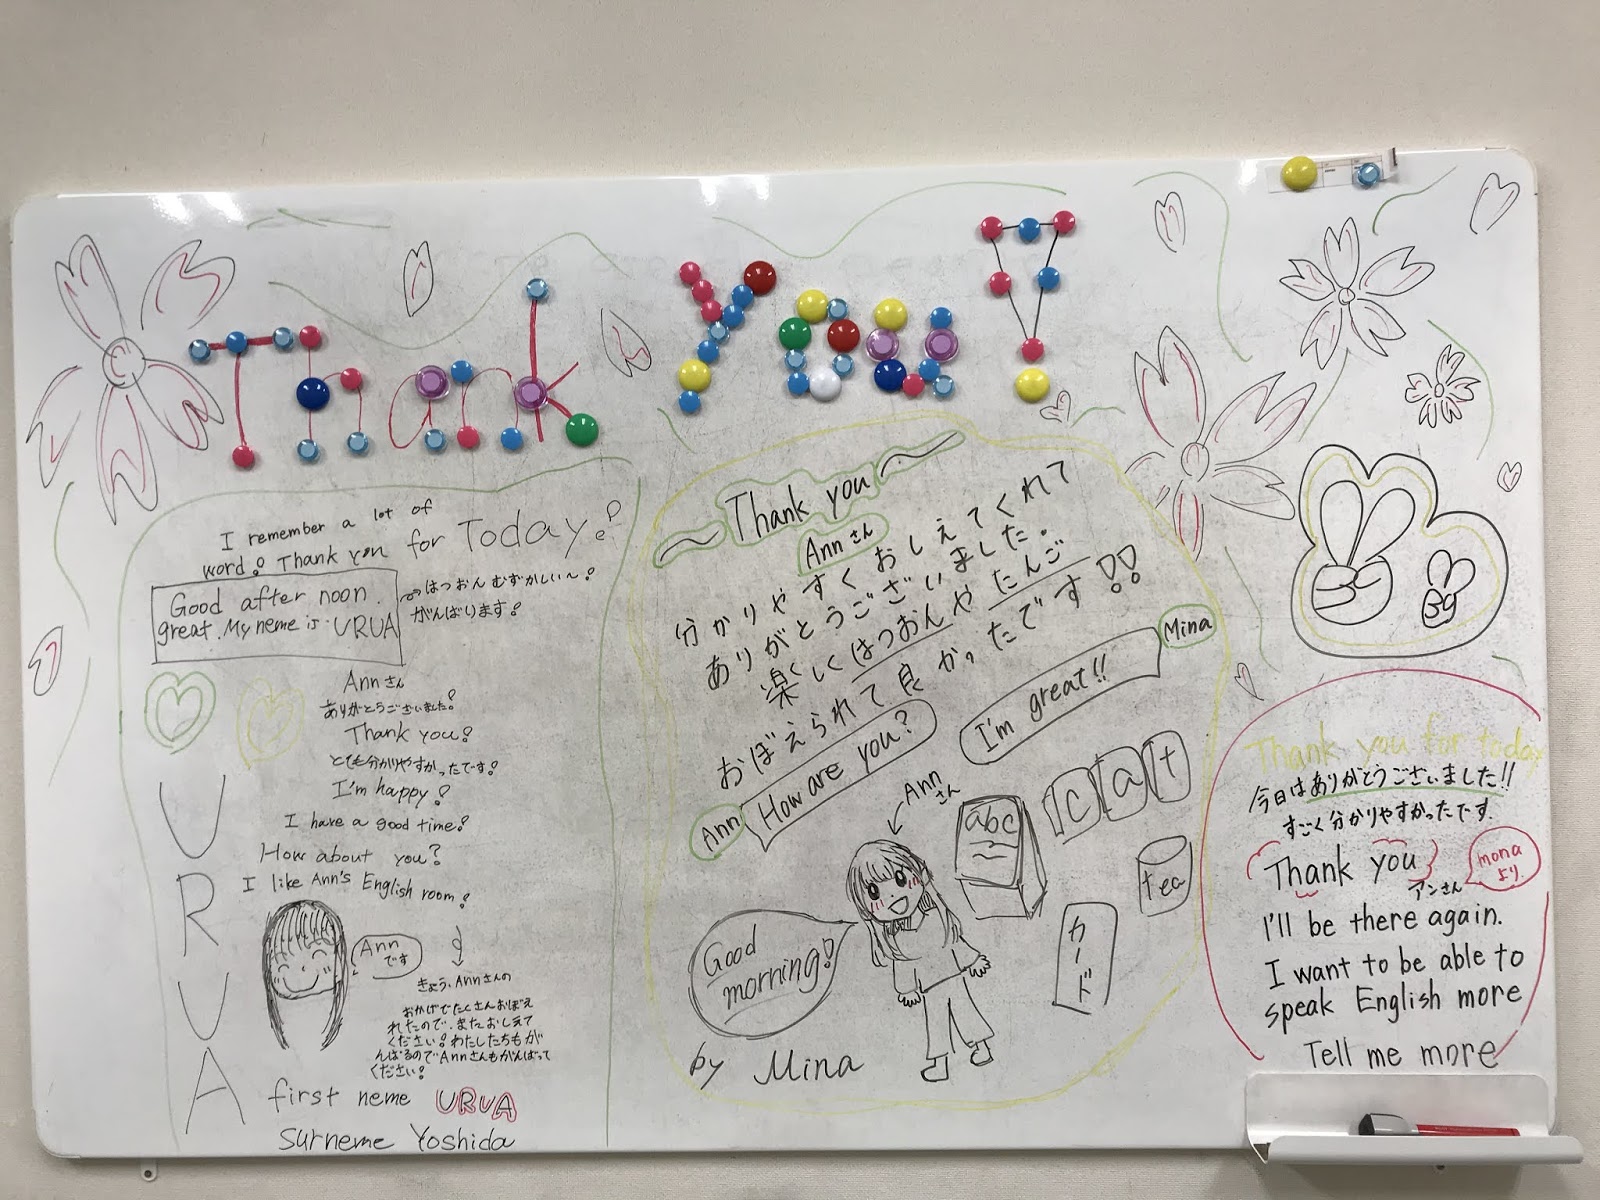 Thank You!
I remember a lot of
word! Thank you for Today!
Good after noon.
great. My neme is URUA
はつおん むずかしい〜!
がんばります!
Annさん
ありがとうございました!
Thank you!
とても分かりやすかったです!
I'm happy!
I have a good time!
How about you?
I like Ann's English room!
URUA
Ann
です
きょう、Annさんの
おかげでたくさんおぼえ
れたので、またおしえて
ください!わたしたちもが
んばるのでAnnさんもがんばって
ください!
first neme URUA
Surneme Yoshida
Thank you
Annさん
分かりやすくおしえてくれて
ありがとうございました。
楽しくはつおんやたんご
おぼえられて良かったです!!
Ann
How are you?
I'm great!!
Mina
Annさん
abc
c a t
tea
カード
Good
morning!
by Mina
Thank you for today
今日はありがとうございました!!
すごく分かりやすかったです.
Thank you
アンさん
monaより.
I'll be there again.
I want to be able to
speak English more
Tell me more